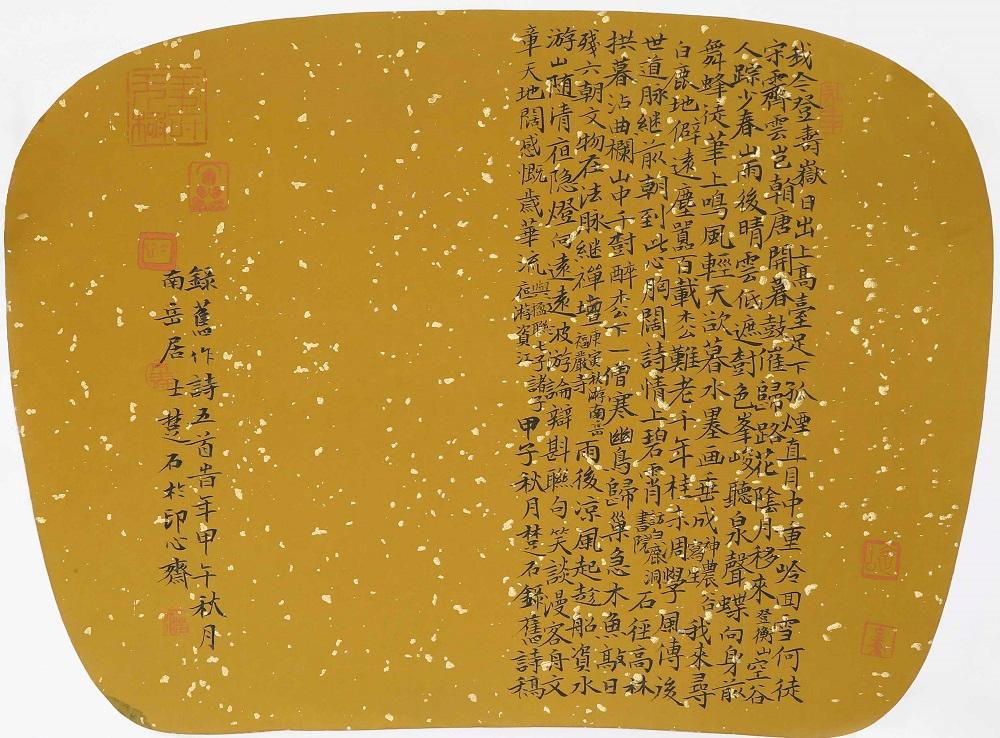 我今登壽嶽日出上高臺足下孤煙直目中重岭回雪何徒
宗霽雲豈翰唐開暮鼓催歸路花陰月移來登衡山空谷
人踪少春山雨後晴雲低遮樹色峯峻聽泉聲蝶向身前
舞蜂徒筆上鳴風輕天欲暮水墨画垂成神農谷寫生我來尋
白鹿地僻遠塵囂百載杰公難老千年桂亦周學風傳後
世道脉继前朝到此心胸闊詩情上碧霄訪白鹿洞書院石徑高林
拱暮沾曲欄山中千樹醉杰下一僧寒幽鳥歸巢急木魚敲日
殘六朝文物在法脉继禪壇庚寅秋游南岳福嚴寺雨後凉風起趁船資水
游山随清夜隐燈向遠遠波游論辯斟聯句笑談漫客舟文
章天地闊感慨歲華流與楹聯七子諸子夜游資江甲子秋月楚石錄舊詩稿
錄舊作詩五首昔年甲午秋月
南岳居士楚石於印心齋